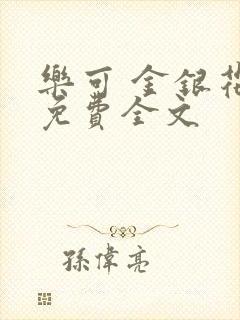 樂可 金銀花
免費全文
孫偉亮